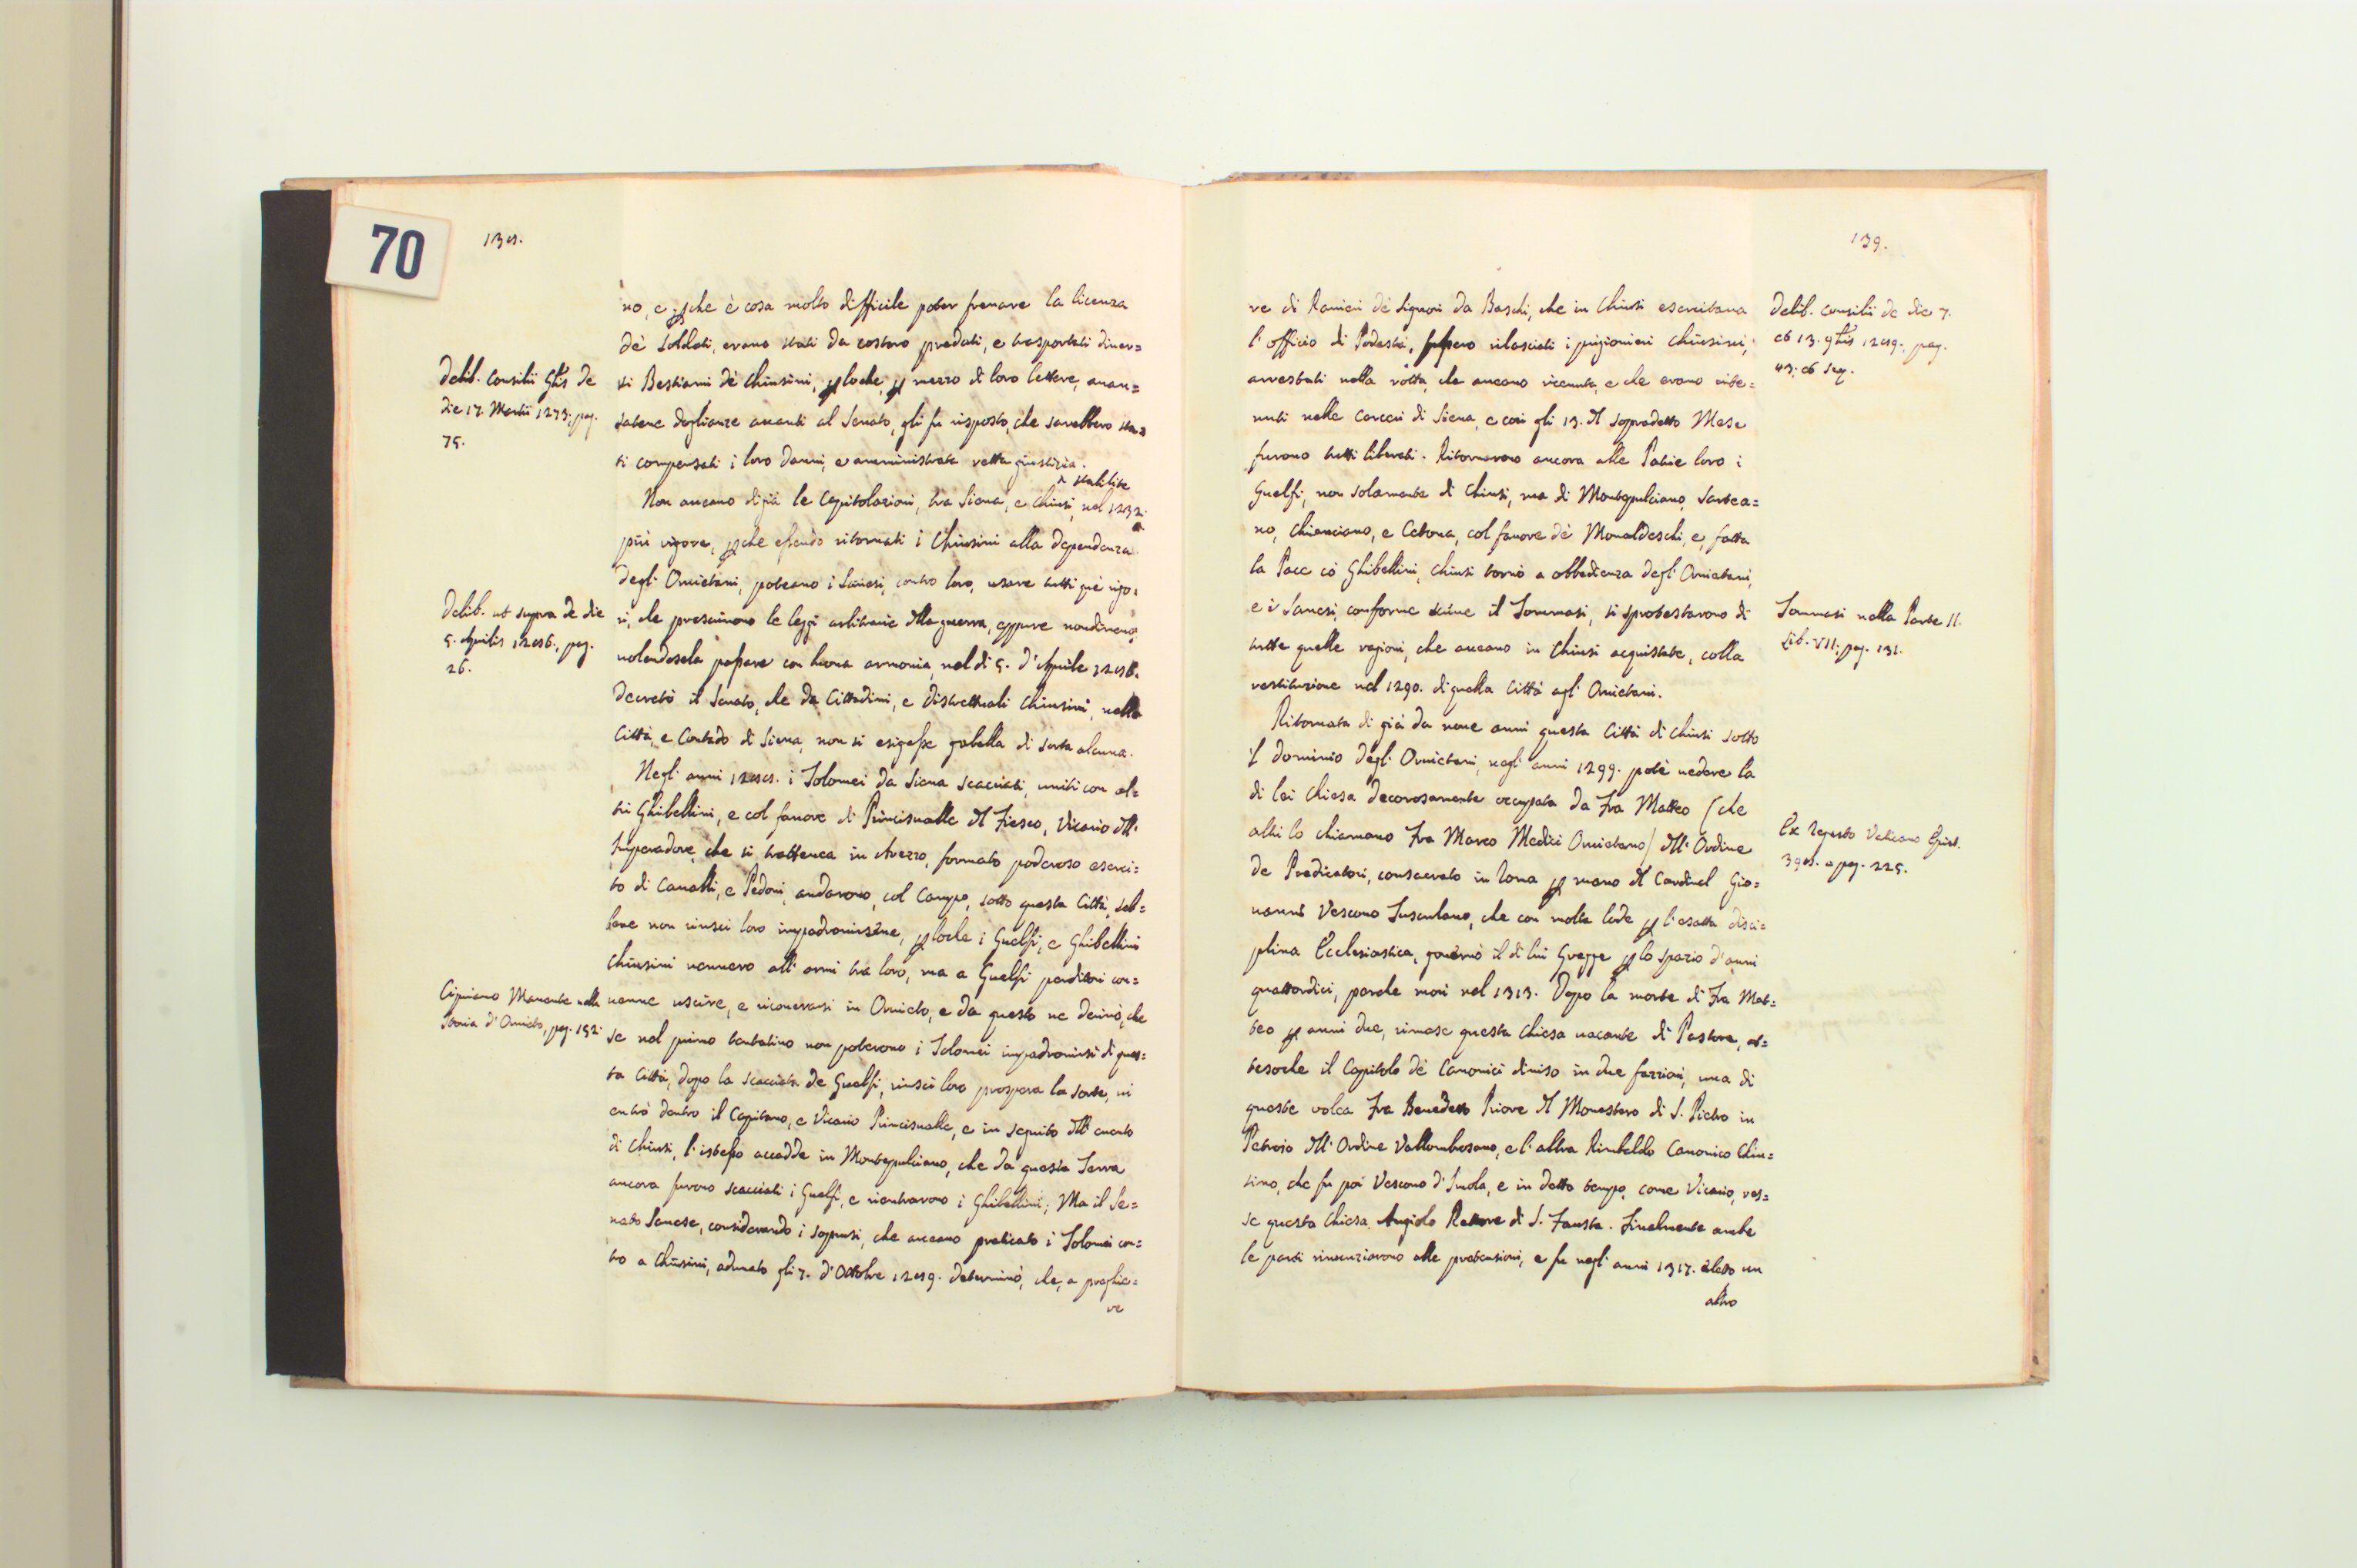 70
138.
no, e perche è cosa molto difficile poter frenare la licenza
dè Soldati, erano stati da costoro predati, e trasportati diver=
ti Bestiami dè Chiusini, perloche, per mezzo di loro lettere, auan=
zatene doglianze auanti al Senato, gli fu risposto, che sarebbero sta=
ti compensati i loro danni, e amministrata retta giustizia.
stabilite
Non aueano di già le Capitolazioni, tra Siena, e Chiusi, nel 1232.
più vigore, perche essendo ritornati i Chiusini alla dependenza
degl' Oruietani, poteano i Sanesi, contro loro, usare tutti què rigo=
ri, che prescriuono le leggi arbitrarie della guerra, eppure nondimeno,
uolendosela passare con buona armonia, nel dì 5. d'Aprile 1286.
decretò il Senato, che da Cittadini, e distrettuali Chiusini, nella
Città, e Contado di Siena, non si esigesse gabella di sorta alcuna.
Negl' anni 1288. i Tolomei da Siena scacciati, uniti con al=
tri Ghibellini, e col fauore di Princisualle del Fiesco, Vicario dell'
Imperadore, che si tratteneua in Arezzo, formato poderoso eserci=
to di Caualli, e Pedoni, andarono, col Campo, sotto questa Città, seb=
bene non riuscì loro impadronirsene, perloche i Guelfi, e Ghibellini
Chiusini uennero all' armi tra loro, ma a Guelfi perditori con=
uenne uscire, e ricouerarsi in Oruieto, e da questo ne deriuò, che
se nel primo tentatiuo non poterono i Tolomei impadronirsi di ques=
ta Città, dopo la scacciata de Guelfi, riuscì loro prospera la sorte, ui
entrò dentro il Capitano, e Vicario Princisualle, e in seguito dell' euento
di Chiusi, l'istesso accadde in Montepulciano, che da questa Terra
ancora furono scacciati i Guelfi, e rientrarono i Ghibellini; Ma il Se=
nato Sanese, considerando i soprusi, che aueano praticato i Tolomei con=
tro a Chiusini, adunato gli 7. d'Ottobre 1289. determinò, che, a preghie=
re
Delib. Consilii Glis de
die 17. Martii 1273; pag.
75.
Delib. ut supra de die
5. Aprilis 1286., pag.
26.
Cipriano Manente nella
Storia d'Oruieto, pag. 152.
139.
re di Ranieri dè Signori da Baschi, che in Chiusi esercitaua
l'officio di Podestà, fussero rilasciati i prigionieri Chiusini,
arrestati nella rotta, che aueano riceuuta, e che erano rite=
nuti nelle Carceri di Siena, e così gli 13. del sopradetto Mese
furono tutti liberati. Ritornarono ancora alle Patrie loro i
Guelfi, non solamente di Chiusi, ma di Montepulciano, Sartea=
no, Chianciano, e Cetona, col fauore dè Monaldeschi, e, fatta
la Pace cò Ghibellini, Chiusi tornò a obbedienza degl' Oruietani,
e i Sanesi, conforme scriue il Tommasi, si sprotestarono di
tutte quelle ragioni, che aueano in Chiusi acquistate, colla
restituzione nel 1290. di quella Città agl' Oruietani.
Ritornata di già da noue anni questa Città di Chiusi sotto
il dominio degl' Oruietani, negl' anni 1299. potè uedere la
di lei Chiesa decorosamente occupata da Fra Matteo (che
altri lo chiamano Fra Marco Medici Oruietano) dell' Ordine
de Predicatori, consacrato in Roma per mano del Cardinal Gio=
uanni Vescouo Tusculano, che con molta lode per l'esatta disci=
plina Ecclesiastica, gouernò il di lui Gregge per lo spazio d'anni
quattordici, perche morì nel 1313. Dopo la morte di Fra Mat=
teo per anni due, rimase questa Chiesa uacante di Pastore, at=
tesoche il Capitolo dè Canonici diuiso in due fazzioni, una di
queste volea Fra Benedetto Priore del Monastero di S. Pietro in
Petroio dell' Ordine Vallombrosano, e l'altra Rimbaldo Canonico Chiu=
sino, che fu poi Vescouo d'Imola, e in detto tempo, come Vicario, res=
se questa Chiesa, Angiolo Rettore di S. Fausta. Finalmente ambe
le parti rinunziarono alle pretensioni, e fu negl' anni 1317. eletto un
altro
Delib. Consilii de die 7.
et 13. 8bris 1289., pag.
43. et seq.
Tommasi nella Parte II.
Lib. VII. pag. 131.
Ex Regesto Vaticano Epist.
398. a pag. 225.